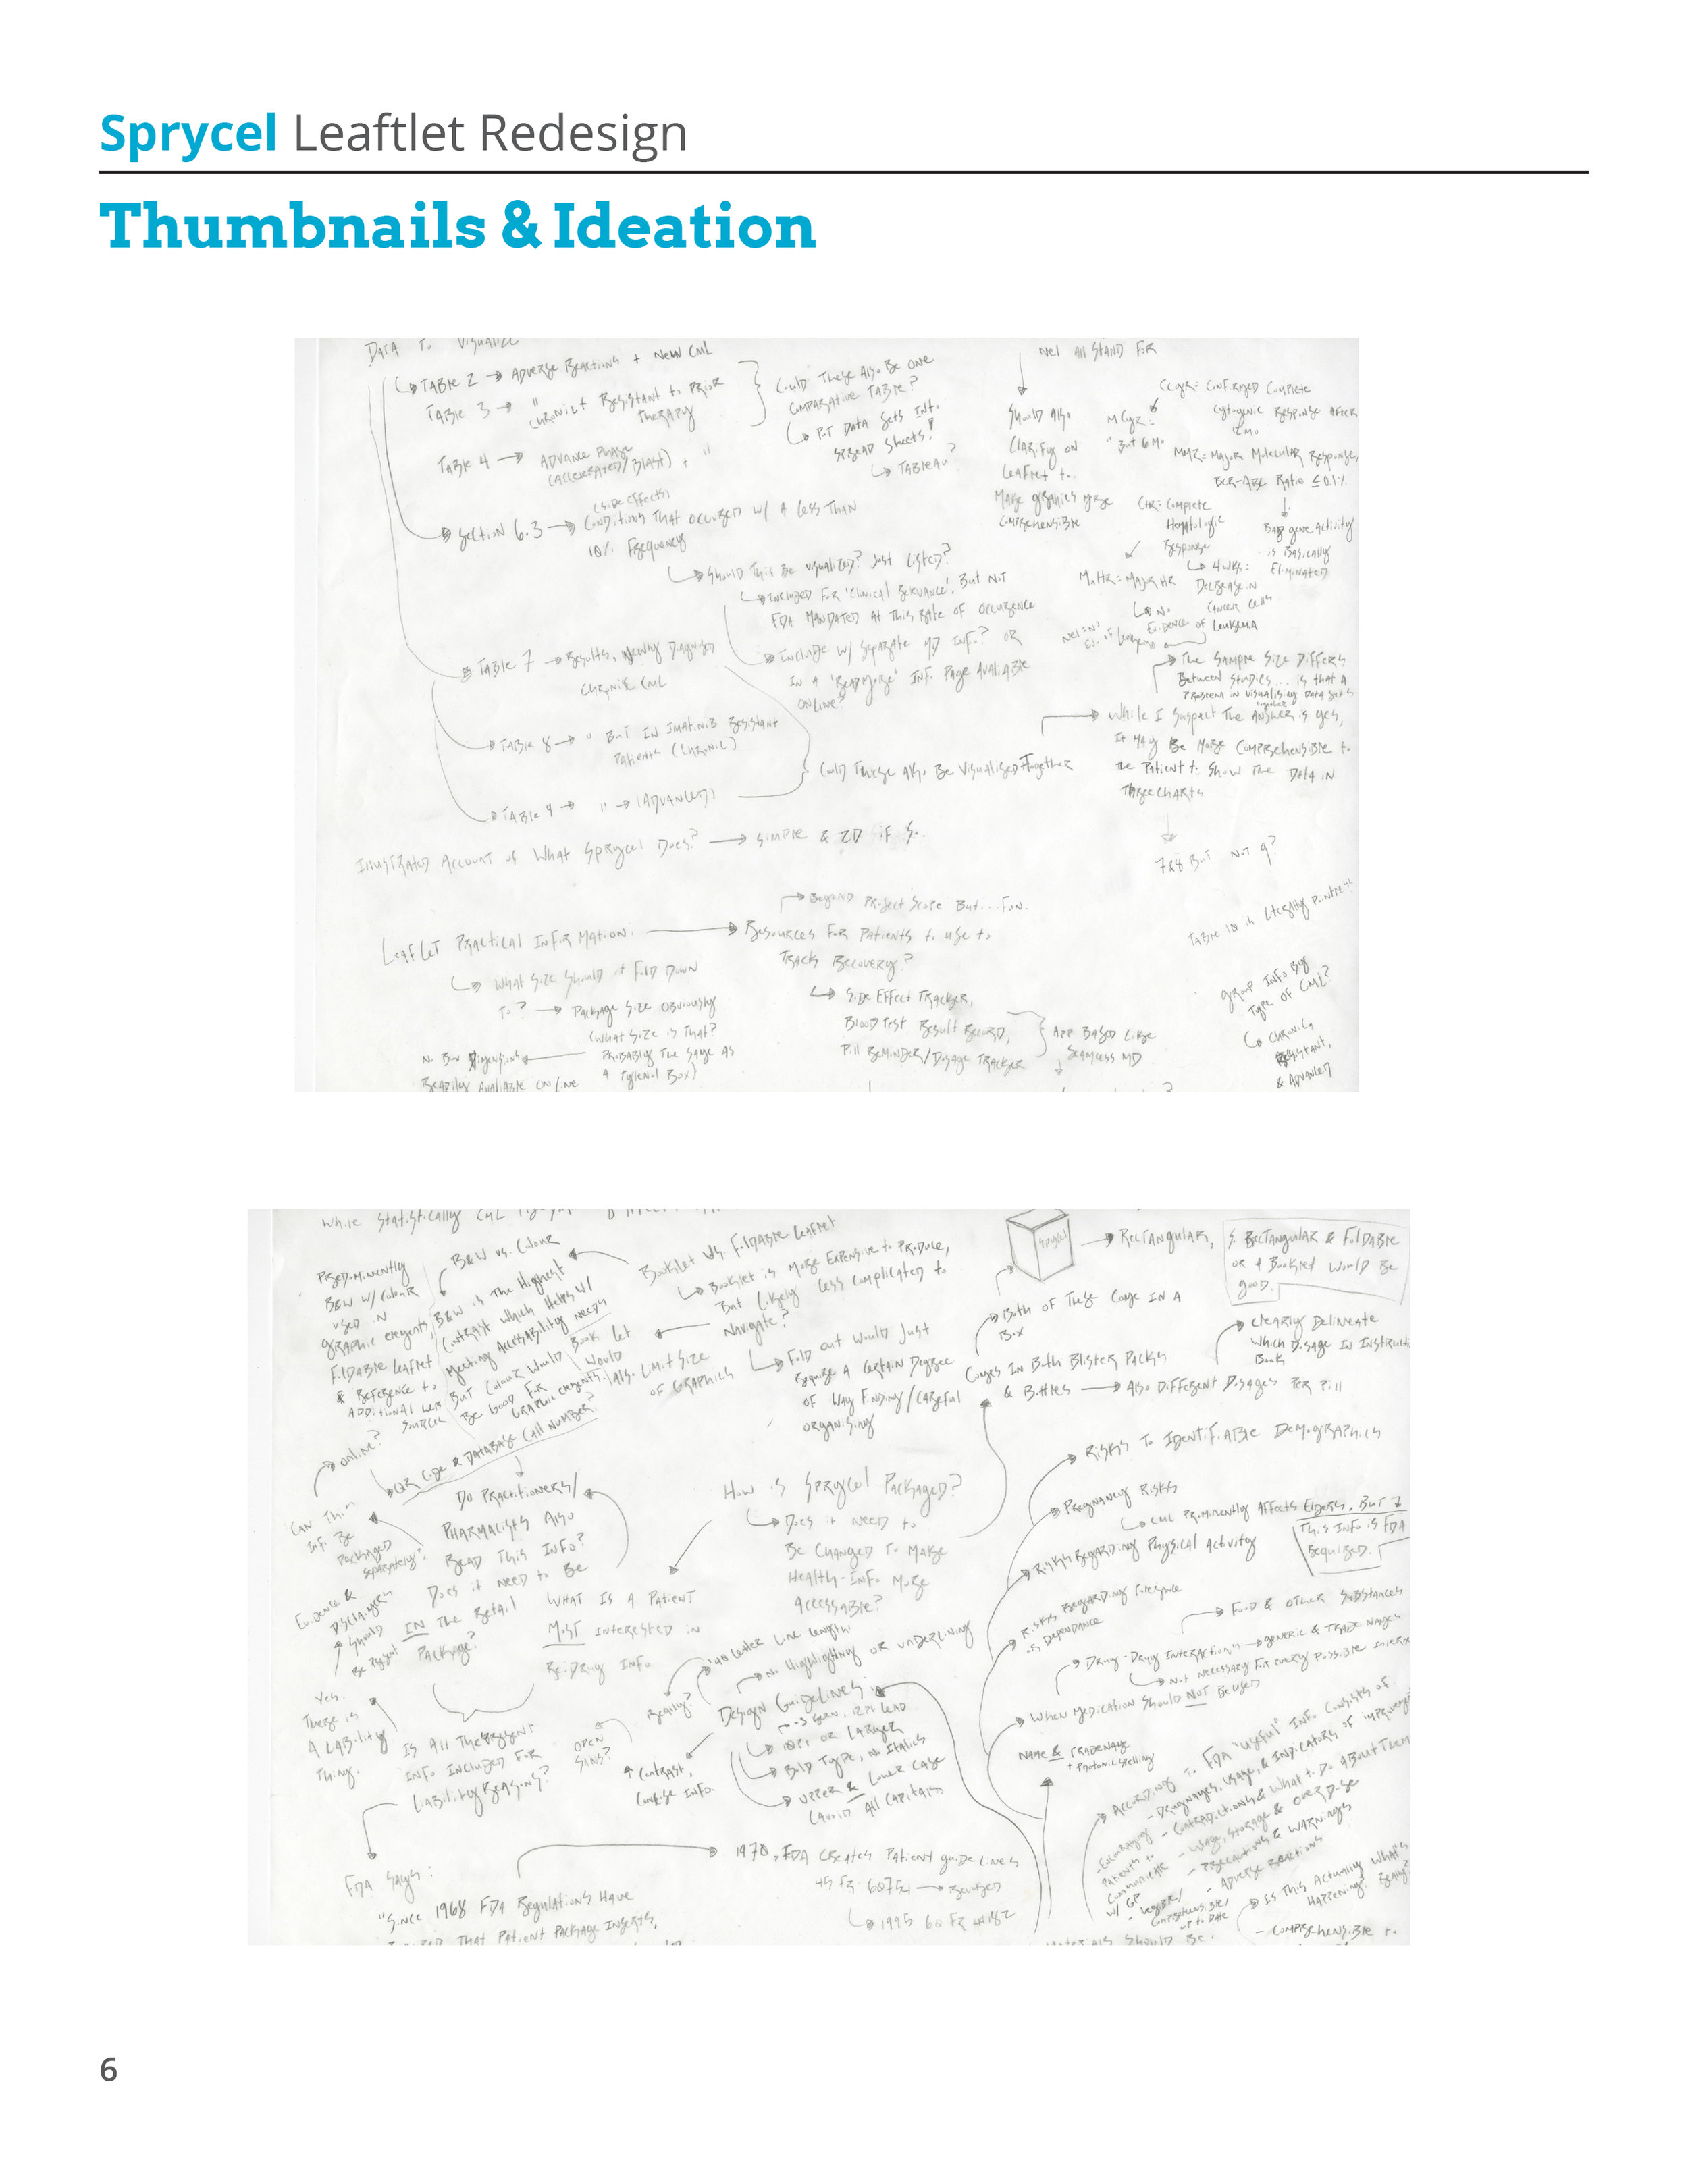 Sprycel Leaftlet Redesign
Thumbnails & Ideation
DATA To VISUALIZE
TABLE 2 → ADVERSE REACTIONS + NEW CML
TABLE 3 → " CHRONIC + RESISTANT to PRIOR
THERAPY
COULD THESE ALSO BE ONE
COMPARATIVE TABLE?
PUT DATA SETS INTO
SPREAD SHEETS!
TABLEAU?
TABLE 4 → ADVANCE PHASE
(ACCELERATED/BLAST) + "
(SIDE EFFECTS)
SECTION 6.3 → CONDITIONS THAT OCCURED W/ A LESS THAN
10% FREQUENCY
SHOULD THIS BE VISUALIZED? JUST LISTED?
INCLUDED FOR 'CLINICAL RELEVANCE', BUT NOT
FDA MANDATED AT THIS RATE OF OCCURENCE
INCLUDE W/ SEPARATE MD INFO? OR
IN A 'READ MORE' INFO PAGE AVALIABLE
ONLINE?
TABLE 7 → RESULTS, NEWLY DIAGNOSED
CHRONIC CML
TABLE 8 → " BUT IN IMATINIB RESISTANT
PATIENTS (CHRONIC)
TABLE 9 → " → (ADVANCED)
COULD THESE ALSO BE VISUALISED TOGETHER
ALL STAND FOR
SHOULD ALSO
CLARIFY ON
LEAFLET TO
MAKE GRAPHICS MORE
COMPREHENSIBLE
CCyR = CONFIRMED COMPLETE
CYTOGENIC RESPONSE AFTER
12 MO
MCyR =
" BUT 6 MO
MMR = MAJOR MOLECULAR RESPONSE,
BCR-ABL RATIO ≤ 0.1%
BAD GENE ACTIVITY
IS BASICALLY
ELIMINATED
CHR = COMPLETE
HEMATOLOGIC
RESPONSE
4 WKS:
DECREASE IN
CANCER CELLS
MaHR = MAJOR HR
NO
EVIDENCE OF LEUKEMIA
THE SAMPLE SIZE DIFFERS
BETWEEN STUDIES... IS THAT A
PROBLEM IN VISUALISING DATA SETS
TOGETHER?
WHILE I SUSPECT THE ANSWER IS YES,
IT MAY BE MORE COMPREHENSIBLE TO
THE PATIENT TO SHOW THE DATA IN
THREE CHARTS
7&8 BUT NOT 9?
ILLUSTRATED ACCOUNT OF WHAT SPRYCEL DOES? → SIMPLE & 2D IF SO.
TABLE 10 IS LITERALLY POINTLESS
LEAFLET PRACTICAL INFORMATION. → RESOURCES FOR PATIENTS TO USE TO
TRACK RECOVERY?
BEYOND PROJECT SCOPE BUT... FUN.
WHAT SIZE SHOULD IT FOLD DOWN
TO? → PACKAGE SIZE OBVIOUSLY
(WHAT SIZE IS THAT?
PROBABLY THE SAME AS
A TYLENOL BOX)
NO BOX DIMENSIONS
READILY AVALIABLE ONLINE
SIDE EFFECT TRACKER,
BLOOD TEST RESULT RECORD,
PILL REMINDER/DOSAGE TRACKER
APP BASED LIKE
SEAMLESS MD
GROUP INFO BY
TYPE OF CML?
CHRONIC,
RESISTANT,
& ADVANCED
WHILE STATISTICALLY CML
PREDOMINENTLY
B&W W/ COLOUR
USED IN
GRAPHIC ELEMENTS,
FOLDABLE LEAFLET
& REFERENCE TO
ADDITIONAL WEB
SOURCES
B&W VS. COLOUR
B&W IS THE HIGHEST
CONTRAST WHICH HELPS W/
MEETING ACCESSABILITY NEEDS
BUT COLOUR WOULD
BE GOOD FOR
GRAPHIC ELEMENTS.
BOOKLET
WOULD
ALSO LIMIT SIZE
OF GRAPHICS
BOOKLET VS. FOLDABLE LEAFLET
BOOKLET IS MORE EXPENSIVE TO PRODUCE,
BUT LIKELY LESS COMPLICATED TO
NAVIGATE?
FOLD OUT WOULD JUST
REQUIRE A CERTAIN DEGREE
OF WAY FINDING/CAREFUL
ORGANISING
SPRYCEL
RECTANGULAR,
SO RECTANGULAR & FOLDABLE
OR A BOOKLET WOULD BE
GOOD.
BOTH OF THESE COME IN A
BOX
COMES IN BOTH BLISTER PACKS
& BOTTLES → ALSO DIFFERENT DOSAGES PER PILL
CLEARLY DELINEATE
WHICH DOSAGE IN
BOOK
ONLINE?
QR CODE & DATABASE CALL NUMBER?
CAN THIS
INFO BE
PACKAGED
SEPARATELY?
DO PRACTITIONERS/
PHARMACISTS ALSO
READ THIS INFO?
DOES IT NEED TO BE
IN THE RETAIL
PACKAGE?
EVIDENCE &
DISCLAIMERS
SHOULD
BE PRESENT
YES.
THERE IS
A LIABILITY
THING.
IS ALL THE PRESENT
INFO INCLUDED FOR
LIABILITY REASONS?
HOW IS SPRYCEL PACKAGED?
DOES IT NEED TO
BE CHANGED TO MAKE
HEALTH-INFO MORE
ACCESSABLE?
WHAT IS A PATIENT
MOST INTERESTED IN
RE: DRUG INFO
RISKS TO IDENTIFIABLE DEMOGRAPHICS
PREGNANCY RISKS
CML PROMINENTLY AFFECTS ELDERS, BUT
THIS INFO IS FDA
REQUIRED.
RISKS REGARDING PHYSICAL ACTIVITY
RISKS REGARDING TOLERANCE
OF DEPENDANCE
FOOD & OTHER SUBSTANCES
DRUG-DRUG INTERACTIONS → GENERIC & TRADE NAMES
NOT NECESSARY FOR EVERY POSSIBLE
WHEN MEDICATION SHOULD NOT BE USED
NAME & TRADENAME
+ PHOTONIC SPELLING
DESIGN GUIDELINES
40 LETTER LINE LENGTH.
REALLY?
NO HIGHLIGHTING OR UNDERLINING
10PT OR LARGER
BOLD TYPE, NO ITALICS
UPPER & LOWER CASE
(AVOID ALL CAPITALS
OPEN
SANS?
↑ CONTRAST,
CONCISE INFO.
ACCORDING TO FDA "USEFUL" INFO CONSISTS OF:
- DRUG NAMES, USAGE, & INDICATORS OF
- CONTRADICTIONS & WHAT TO DO ABOUT THEM
- USAGE, STORAGE & OVERDOSE
- PRECAUTIONS & WARNINGS
- ADVERSE REACTIONS
- ENCOURAGING
PATIENTS TO
COMMUNICATE
W/ GP
- LEGIBLE/
COMPREHENSIBLE/
UP TO DATE
IS THIS ACTUALLY WHAT'S
HAPPENING? REALLY?
- COMPREHENSIBLE TO
FDA SAYS:
"SINCE 1968 FDA REGULATIONS HAVE
THAT PATIENT PACKAGE INSERTS,
1970, FDA CREATES PATIENT GUIDELINES
→ REVISED
1995 60 FR 44182
MATERIALS SHOULD BE:
6